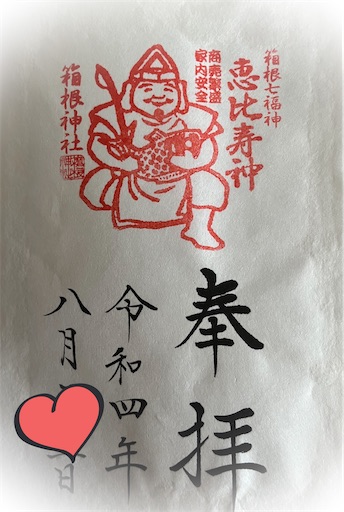 箱根七福神
恵比寿神
商売繁盛
家内安全
箱根神社
奉拝
令和四年
八月 日